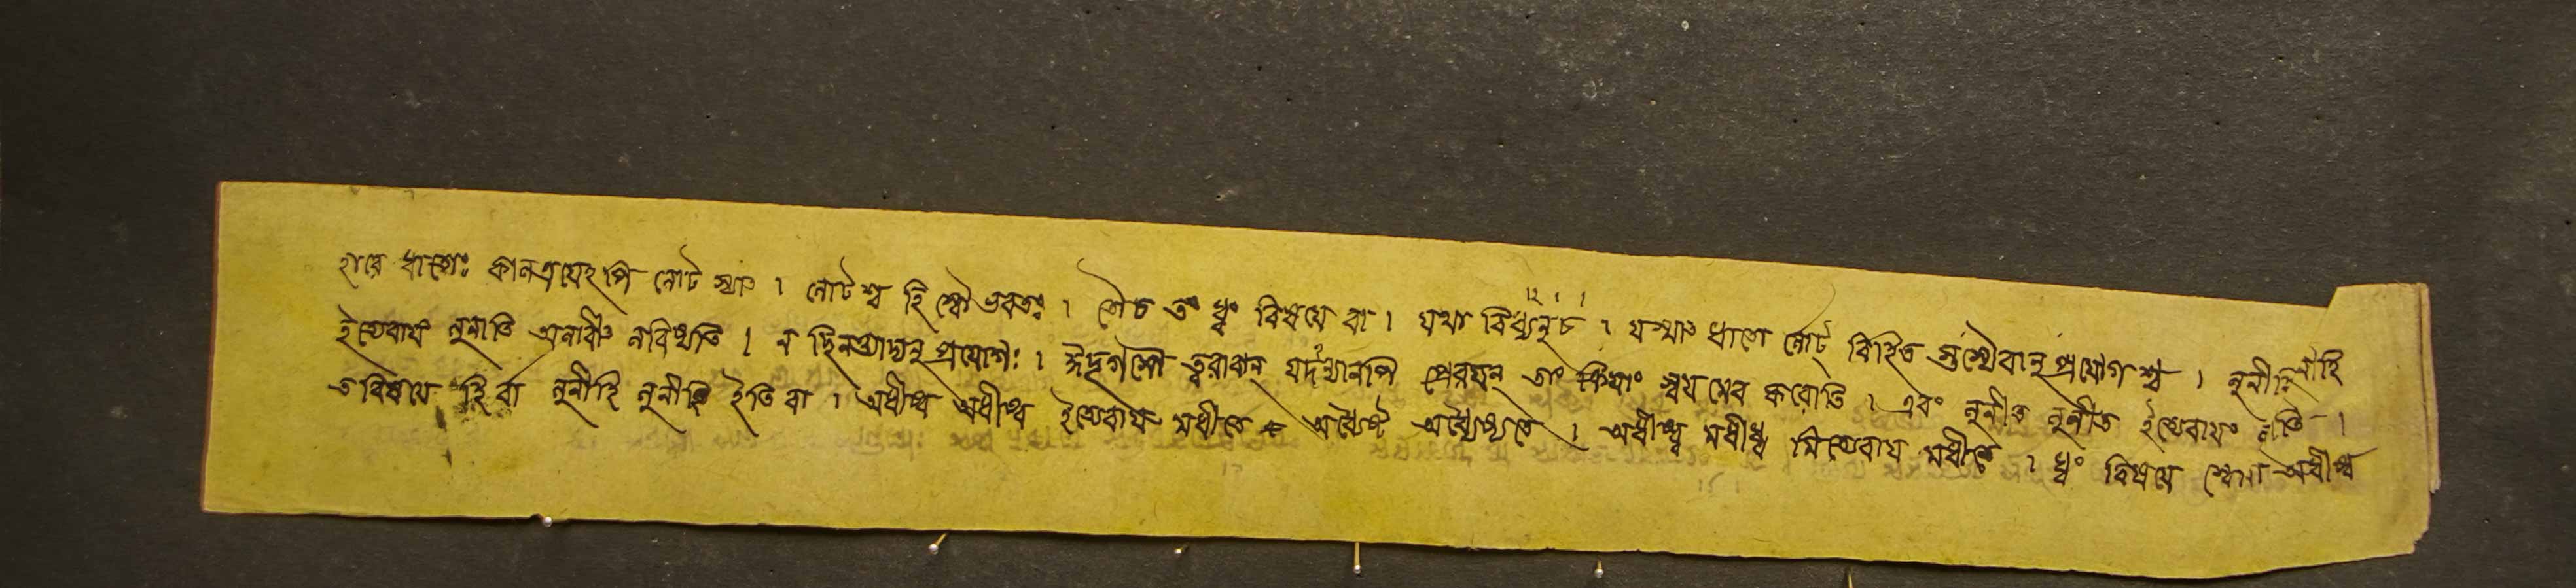 হারে ধাতোঃ কালত্রয়েহপি লোট স্যাৎ । লোটশ্চ হি স্বৌ ভবতঃ । তৌ চ ত ধ্বং বিষয়ে বা । যথা বিধ্যনু চ । যস্মাৎ ধাতো র্লোট্ বিহিত স্তস্যৈবানুপ্রয়োগ শ্চ । লুনীহি লুনীহি
ইত্যেবায়ং লুনাতি অলাবীৎ লবিষ্যতি । ন ছিনত্ত্যাদ্যনুপ্রয়োগঃ । ঈদৃগসৌ ত্বরাবান্ যদন্যানপি প্রেরয়ন্ তাং ক্রিয়াং স্বয়মেব করোতি । এবং লুনীত লুনীত ইত্যেবায়ং লুনাতি ।
ত বিষয়ে হি র্বা লুনীহি লুনীহি ইতি বা । অধীষ্ব অধীষ্ব ইত্যেবায় মধীতে অধ্যৈষ্ট অধ্যেষ্যতে । অধীধ্ব মধীধ্ব মিত্যেবায় মধীতে । ধ্বং বিষয়ে স্বোবা অধীষ্ব